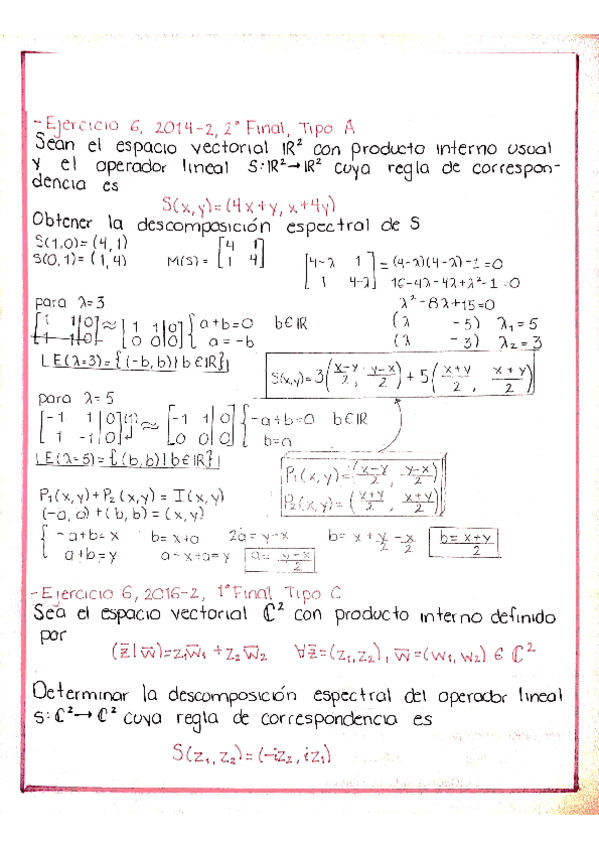 - Ejercicio 6, 2014-2, 2° Final, Tipo A
Sean el espacio vectorial ℝ² con producto interno usual
y el operador lineal S:ℝ²→ℝ² cuya regla de correspon-
dencia es
S(x,y)=(4x+y, x+4y)
Obtener la descomposición espectral de S
S(1,0)=(4,1)
S(0,1)=(1,4)
M(S)=[4 1
1 4]
[4-λ 1
1 4-λ]=(4-λ)(4-λ)-1=0
16-4λ-4λ+λ²-1=0
λ²-8λ+15=0
(λ -5) λ₁=5
(λ -3) λ₂=3
para λ=3
[1 1|0
1 1|0]≈[1 1|0
0 0|0] {a+b=0 b∈ℝ
a=-b
E(λ=3)={(-b,b)|b∈ℝ}
S(x,y)=3(x-y/2, y-x/2)+5(x+y/2, x+y/2)
para λ=5
[-1 1|0
1 -1|0](1)≈[-1 1|0
0 0|0] {-a+b=0 b∈ℝ
b=a
E(λ=5)={(b,b)|b∈ℝ}
P₁(x,y)=(x-y/2, y-x/2)
P₂(x,y)=(x+y/2, x+y/2)
P₁(x,y)+P₂(x,y)=I(x,y)
(-a,a)+(b,b)=(x,y)
{-a+b=x b=x+a 2a=y-x b=x+y/2-x/2 b=x+y/2
a+b=y a+x+a=y a=y-x/2
- Ejercicio 6, 2016-2, 1° Final Tipo C
Sea el espacio vectorial ℂ² con producto interno definido
por
(z̄|w̄)=z₁w̄₁+z₂w̄₂ ∀z̄=(z₁,z₂), w̄=(w₁,w₂)∈ℂ²
Determinar la descomposición espectral del operador lineal
S:ℂ²→ℂ² cuya regla de correspondencia es
S(z₁,z₂)=(-iz₂,iz₁)